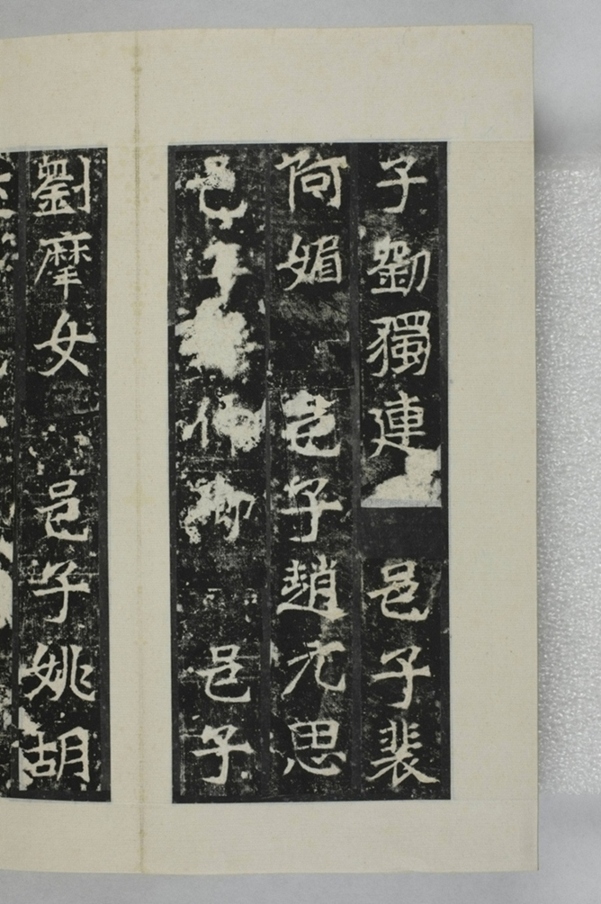 子劉獨連 邑子裴
阿媚 邑子趙元思
邑子 仲卿 邑子
劉摩女 邑子姚胡